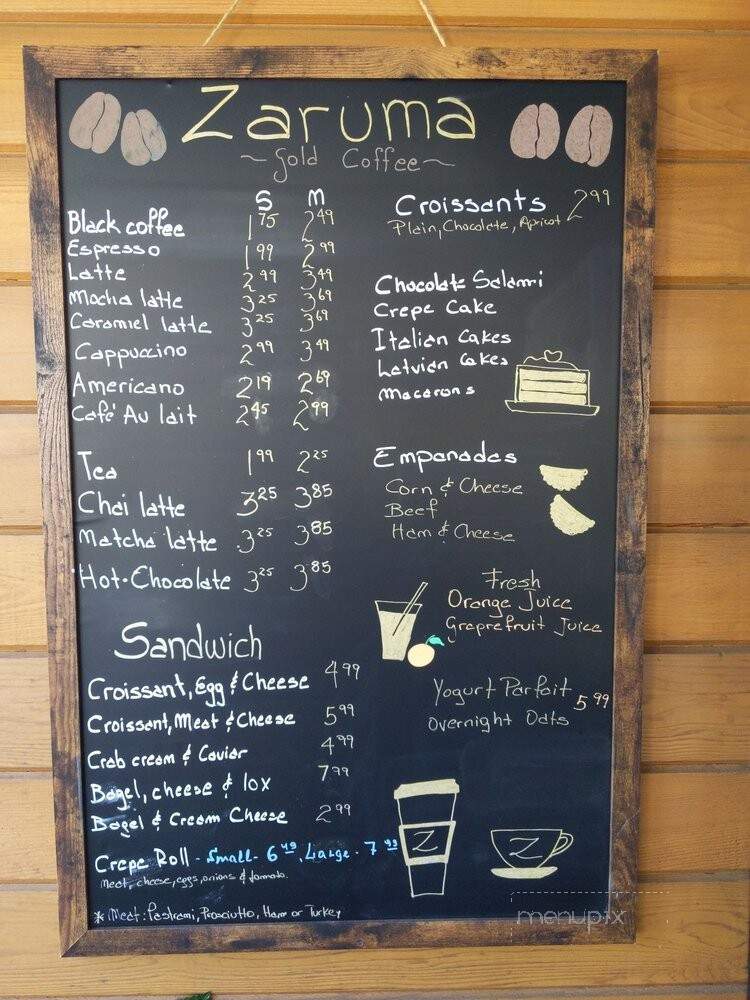 Zaruma
~ Gold Coffee ~
S M
Black coffee 1 75 2 49
Espresso 1 99 2 99
Latte 2 99 3 49
Mocha latte 3 25 3 69
Caramel latte 3 25 3 69
Cappuccino 2 99 3 49
Americano 2 19 2 69
Café Au lait 2 45 2 99
Tea 1 99 2 25
Chai latte 3 25 3 85
Matcha latte 3 25 3 85
Hot Chocolate 3 25 3 85
Sandwich
Croissant, Egg & Cheese 4 99
Croissant, Meat & Cheese 5 99
Crab cream & Caviar 4 99
Bagel, cheese & lox 7 99
Bagel & Cream Cheese 2 99
Crepe Roll - Small - 6 49, Large - 7 99
Meat, cheese, eggs, onions & tomato.
* Meat: Pastrami, Prosciutto, Ham or Turkey
Croissants 2 99
Plain, Chocolate, Apricot
Chocolate Salami
Crepe Cake
Italian Cakes
Latvian Cakes
Macarons
Empanadas
Corn & Cheese
Beef
Ham & Cheese
Fresh
Orange Juice
Grapefruit Juice
Yogurt Parfait 5 99
Overnight Oats
Z
Z
menupix